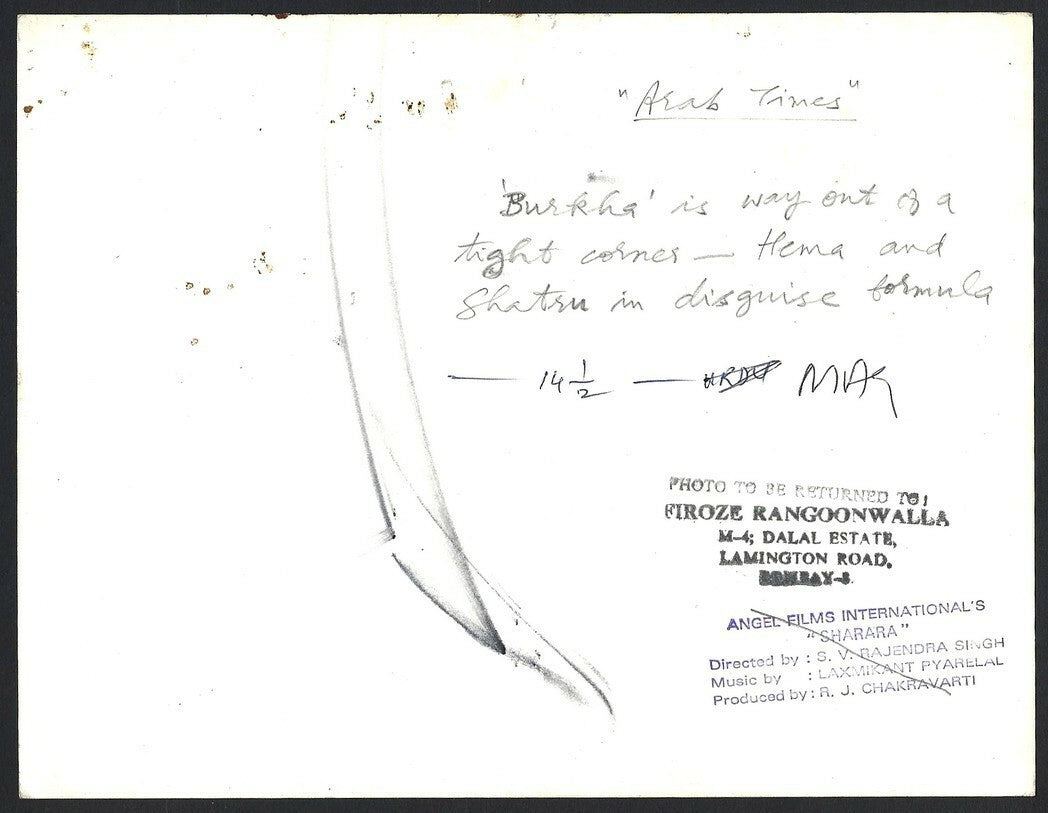 "Arab Times"
'Burkha' is way out of a
tight corner — Hema and
Shatru in disguise formula
— 14 1/2 —
PHOTO TO BE RETURNED TO:
FIROZE RANGOONWALLA
M-4; DALAL ESTATE,
LAMINGTON ROAD,
BOMBAY-8.
ANGEL FILMS INTERNATIONAL'S
"SHARARA"
Directed by : S. V. RAJENDRA SINGH
Music by : LAXMIKANT PYARELAL
Produced by : R. J. CHAKRAVARTI